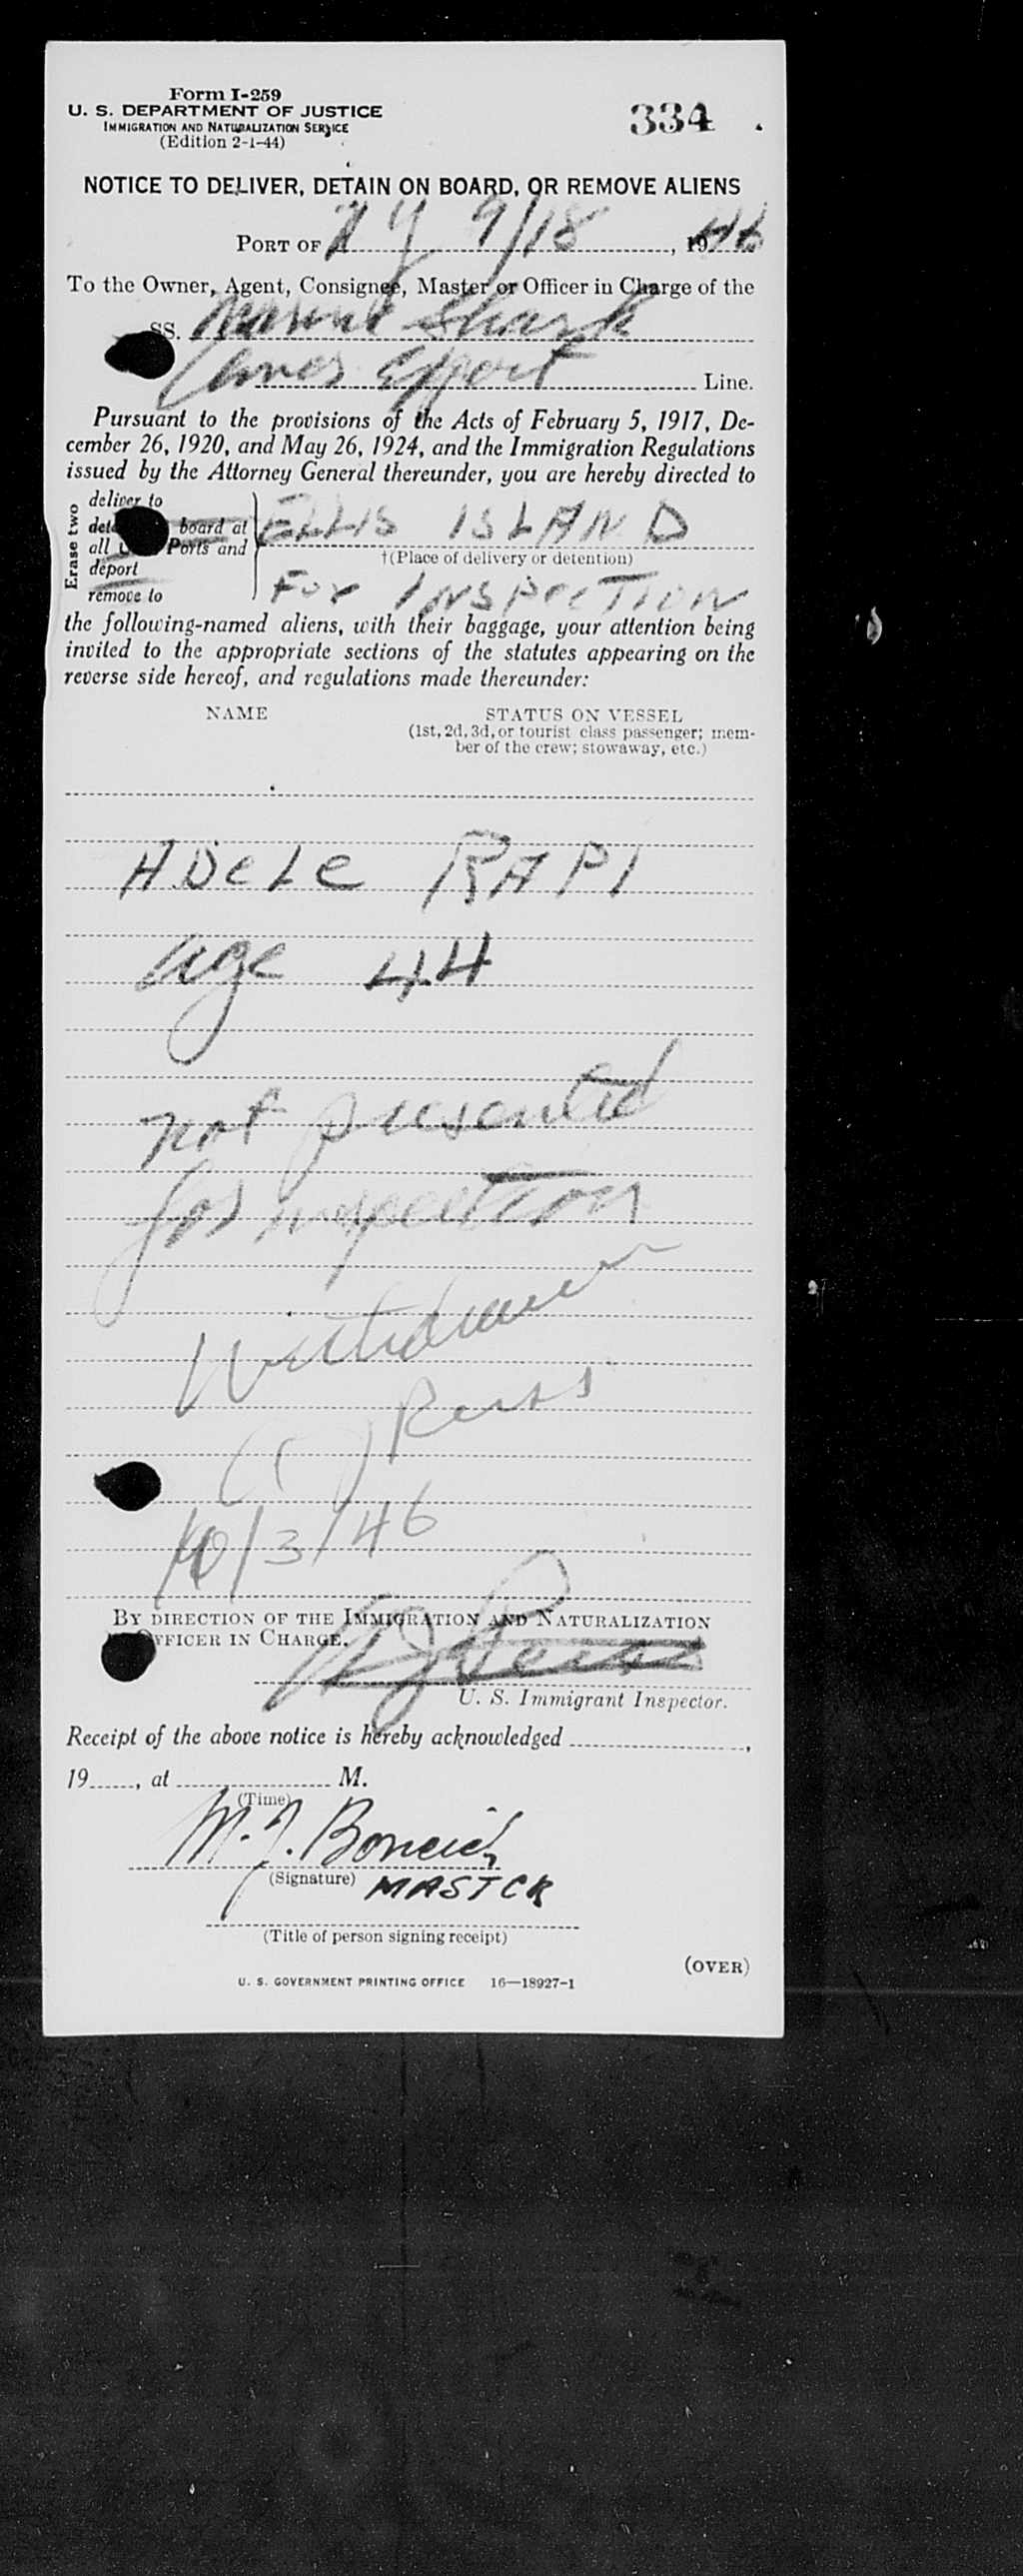 Form I-259
U. S. DEPARTMENT OF JUSTICE
IMMIGRATION AND NATURALIZATION SERVICE
(Edition 2-1-44)
334
NOTICE TO DELIVER, DETAIN ON BOARD, OR REMOVE ALIENS
PORT OF N Y 9/18, 1946
To the Owner, Agent, Consignee, Master or Officer in Charge of the
SS. Marine Shark
Amer Export Line.
Pursuant to the provisions of the Acts of February 5, 1917, De-
cember 26, 1920, and May 26, 1924, and the Immigration Regulations
issued by the Attorney General thereunder, you are hereby directed to
Erase two
deliver to
board at
all Ports and
deport
remove to
ELLIS ISLAND
†(Place of delivery or detention)
For INSPECTION
the following-named aliens, with their baggage, your attention being
invited to the appropriate sections of the statutes appearing on the
reverse side hereof, and regulations made thereunder:
NAME STATUS ON VESSEL
(1st, 2d, 3d, or tourist class passenger; mem-
ber of the crew; stowaway, etc.)
ADeLe RAPI
age 44
not presented
for inspection
Withdrawn
10/3/46
BY DIRECTION OF THE IMMIGRATION AND NATURALIZATION
OFFICER IN CHARGE.
U. S. Immigrant Inspector.
Receipt of the above notice is hereby acknowledged ,
19 , at M.
(Time)
M. J.
(Signature) MASTER
(Title of person signing receipt)
(OVER)
U. S. GOVERNMENT PRINTING OFFICE 16—18927-1